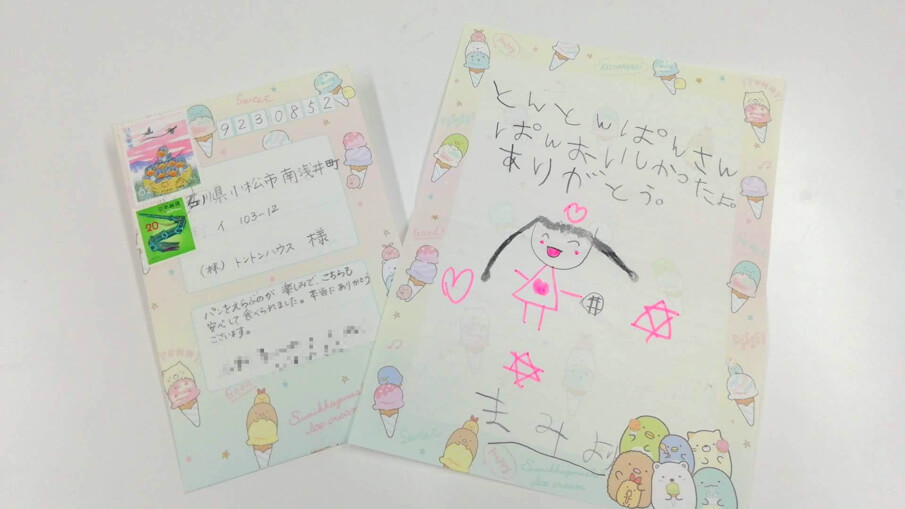 9230852
石川県小松市南浅井町
イ 103-12
(株) トントンハウス 様
パンをえらぶのが 楽しみで、こちらも
安心して食べられました。本当にありがとう
ございます。
20
Sweet
Sumikkogurashi
Ice cream
とんとんぱんさん
ぱんおいしかったよ
ありがとう。
まみよ
Sumikkogurashi
Ice cream